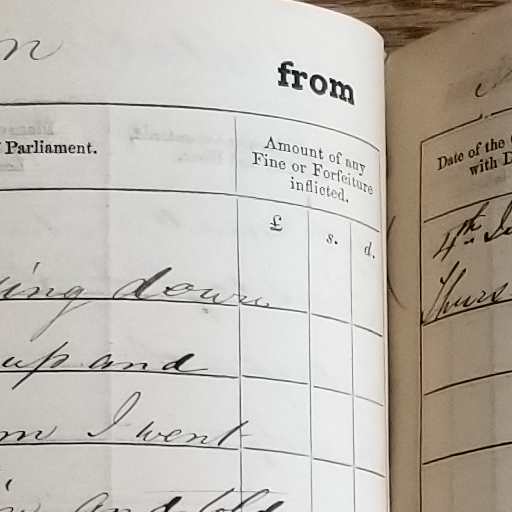 from
Parliament.
Amount of any
Fine or Forfeiture
inflicted.
£ s. d.
ing down
up and
I went
and told
Date of the
with D
4th
Thurs